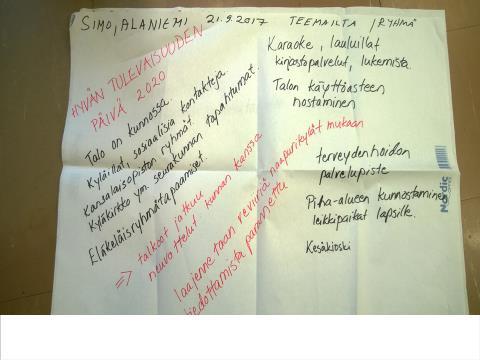 SIMO, ALANIEMI 21.9.2017 TEEMAILTA / RYHMÄ
HYVÄN TULEVAISUUDEN
PÄIVÄ 2020
Talo on kunnossa
Kyläillat, sosiaalisia kontakteja.
Kansalaisopiston ryhmät.
Kyläkirkko ym. seurakunnan tapahtumat.
Eläkeläisryhmätapaamiset.
=> talkoot jatkuu
neuvottelut kunnan kanssa
laajennetaan reviiriä naapurikylät mukaan
tiedottamista parannettu
Karaoke, lauluillat
kirjastopalvelut, lukemista.
Talon käyttöasteen
nostaminen
terveydenhoidon
palvelupiste
Piha-alueen kunnostaminen
leikkipaikat lapsille.
Kesäkioski
Nordic